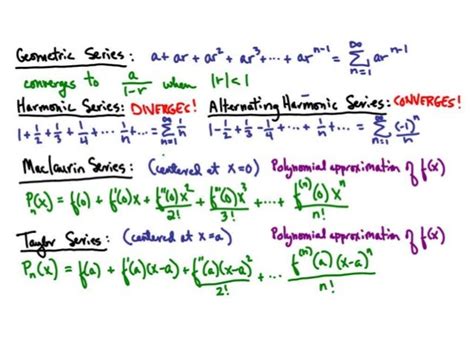 Geometric Series: a + ar + ar² + ar³ + ··· + ar^(n-1) = ∑_{n=1}^{∞} ar^(n-1)
converges to a/(1-r) when |r| < 1
Harmonic Series: DIVERGES! Alternating Harmonic Series: CONVERGES!
1 + 1/2 + 1/3 + 1/4 + ··· 1/n + ··· = ∑_{n=1}^{∞} 1/n 1 - 1/2 + 1/3 - 1/4 + ··· + 1/n + ··· = ∑_{n=1}^{∞} (-1)^n/n
Maclaurin Series: (centered at x=0) Polynomial approximation of f(x)
P_n(x) = f(0) + f'(0)x + f''(0)x²/2! + f'''(0)x³/3! + ··· + f^(n)(0)x^n/n!
Taylor Series: (centered at x=a) Polynomial approximation of f(x)
P_n(x) = f(a) + f'(a)(x-a) + f''(a)(x-a)²/2! + ··· f^(n)(a)(x-a)^n/n!